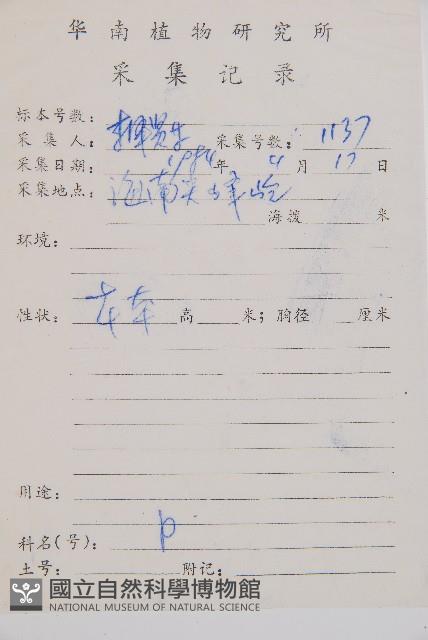 华南植物研究所
采集记录
标本号数：
采集人： 采集号数： 1137
采集日期： 1984年 4月 17日
采集地点： 海南尖峰岭
海拨 米
环境：
性状： 草本 高 米；胸径 厘米
用途：
科名(号)： p
土号： 附记：
國立自然科學博物館
NATIONAL MUSEUM OF NATURAL SCIENCE